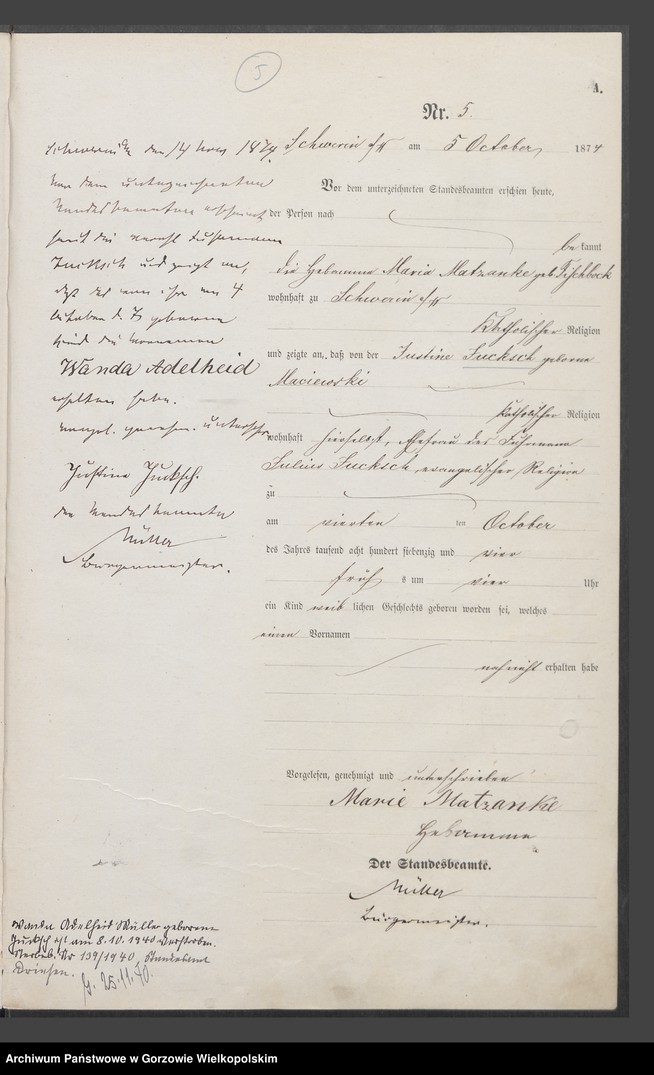 5
A.
Nr. 5.
Schwerin a/W am 5 October 1874
Vor dem unterzeichneten Standesbeamten erschien heute,
der Person nach
bekannt
die Hebamme Maria Matzanke geb. Fischbock
wohnhaft zu Schwerin a/W
katholischer Religion
und zeigte an, daß von der Justine Jucksch geborene
Maciewski
katholischer Religion
wohnhaft hierselbst, Ehefrau des
Julius Jucksch evangelischer Religion
zu
am vierten ten October
des Jahres tausend acht hundert siebenzig und vier
früh s um vier Uhr
ein Kind weiblichen Geschlechts geboren worden sei, welches
einen Vornamen
noch nicht erhalten habe
Vorgelesen, genehmigt und unterschrieben
Marie Matzanke
Hebamme
Der Standesbeamte.
Müller
Bürgermeister.
Schwerin a/W den 14 1874.
Vor dem unterzeichneten
Standesbeamten erscheint
heut die
Jucksch und zeigt an,
daß das von ihr am 4
October d. Js geborene
Kind die Vornamen
Wanda Adelheid
erhalten habe.
Justine Jucksch.
der Standesbeamte
Müller
Bürgermeister.
Wanda Adelheid Müller geborene
Jucksch ist am 8.10.1940 verstorben.
Sterbeb. Nr 139/1940, Standesamt
Driesen.
25.11.40.
Archiwum Państwowe w Gorzowie Wielkopolskim